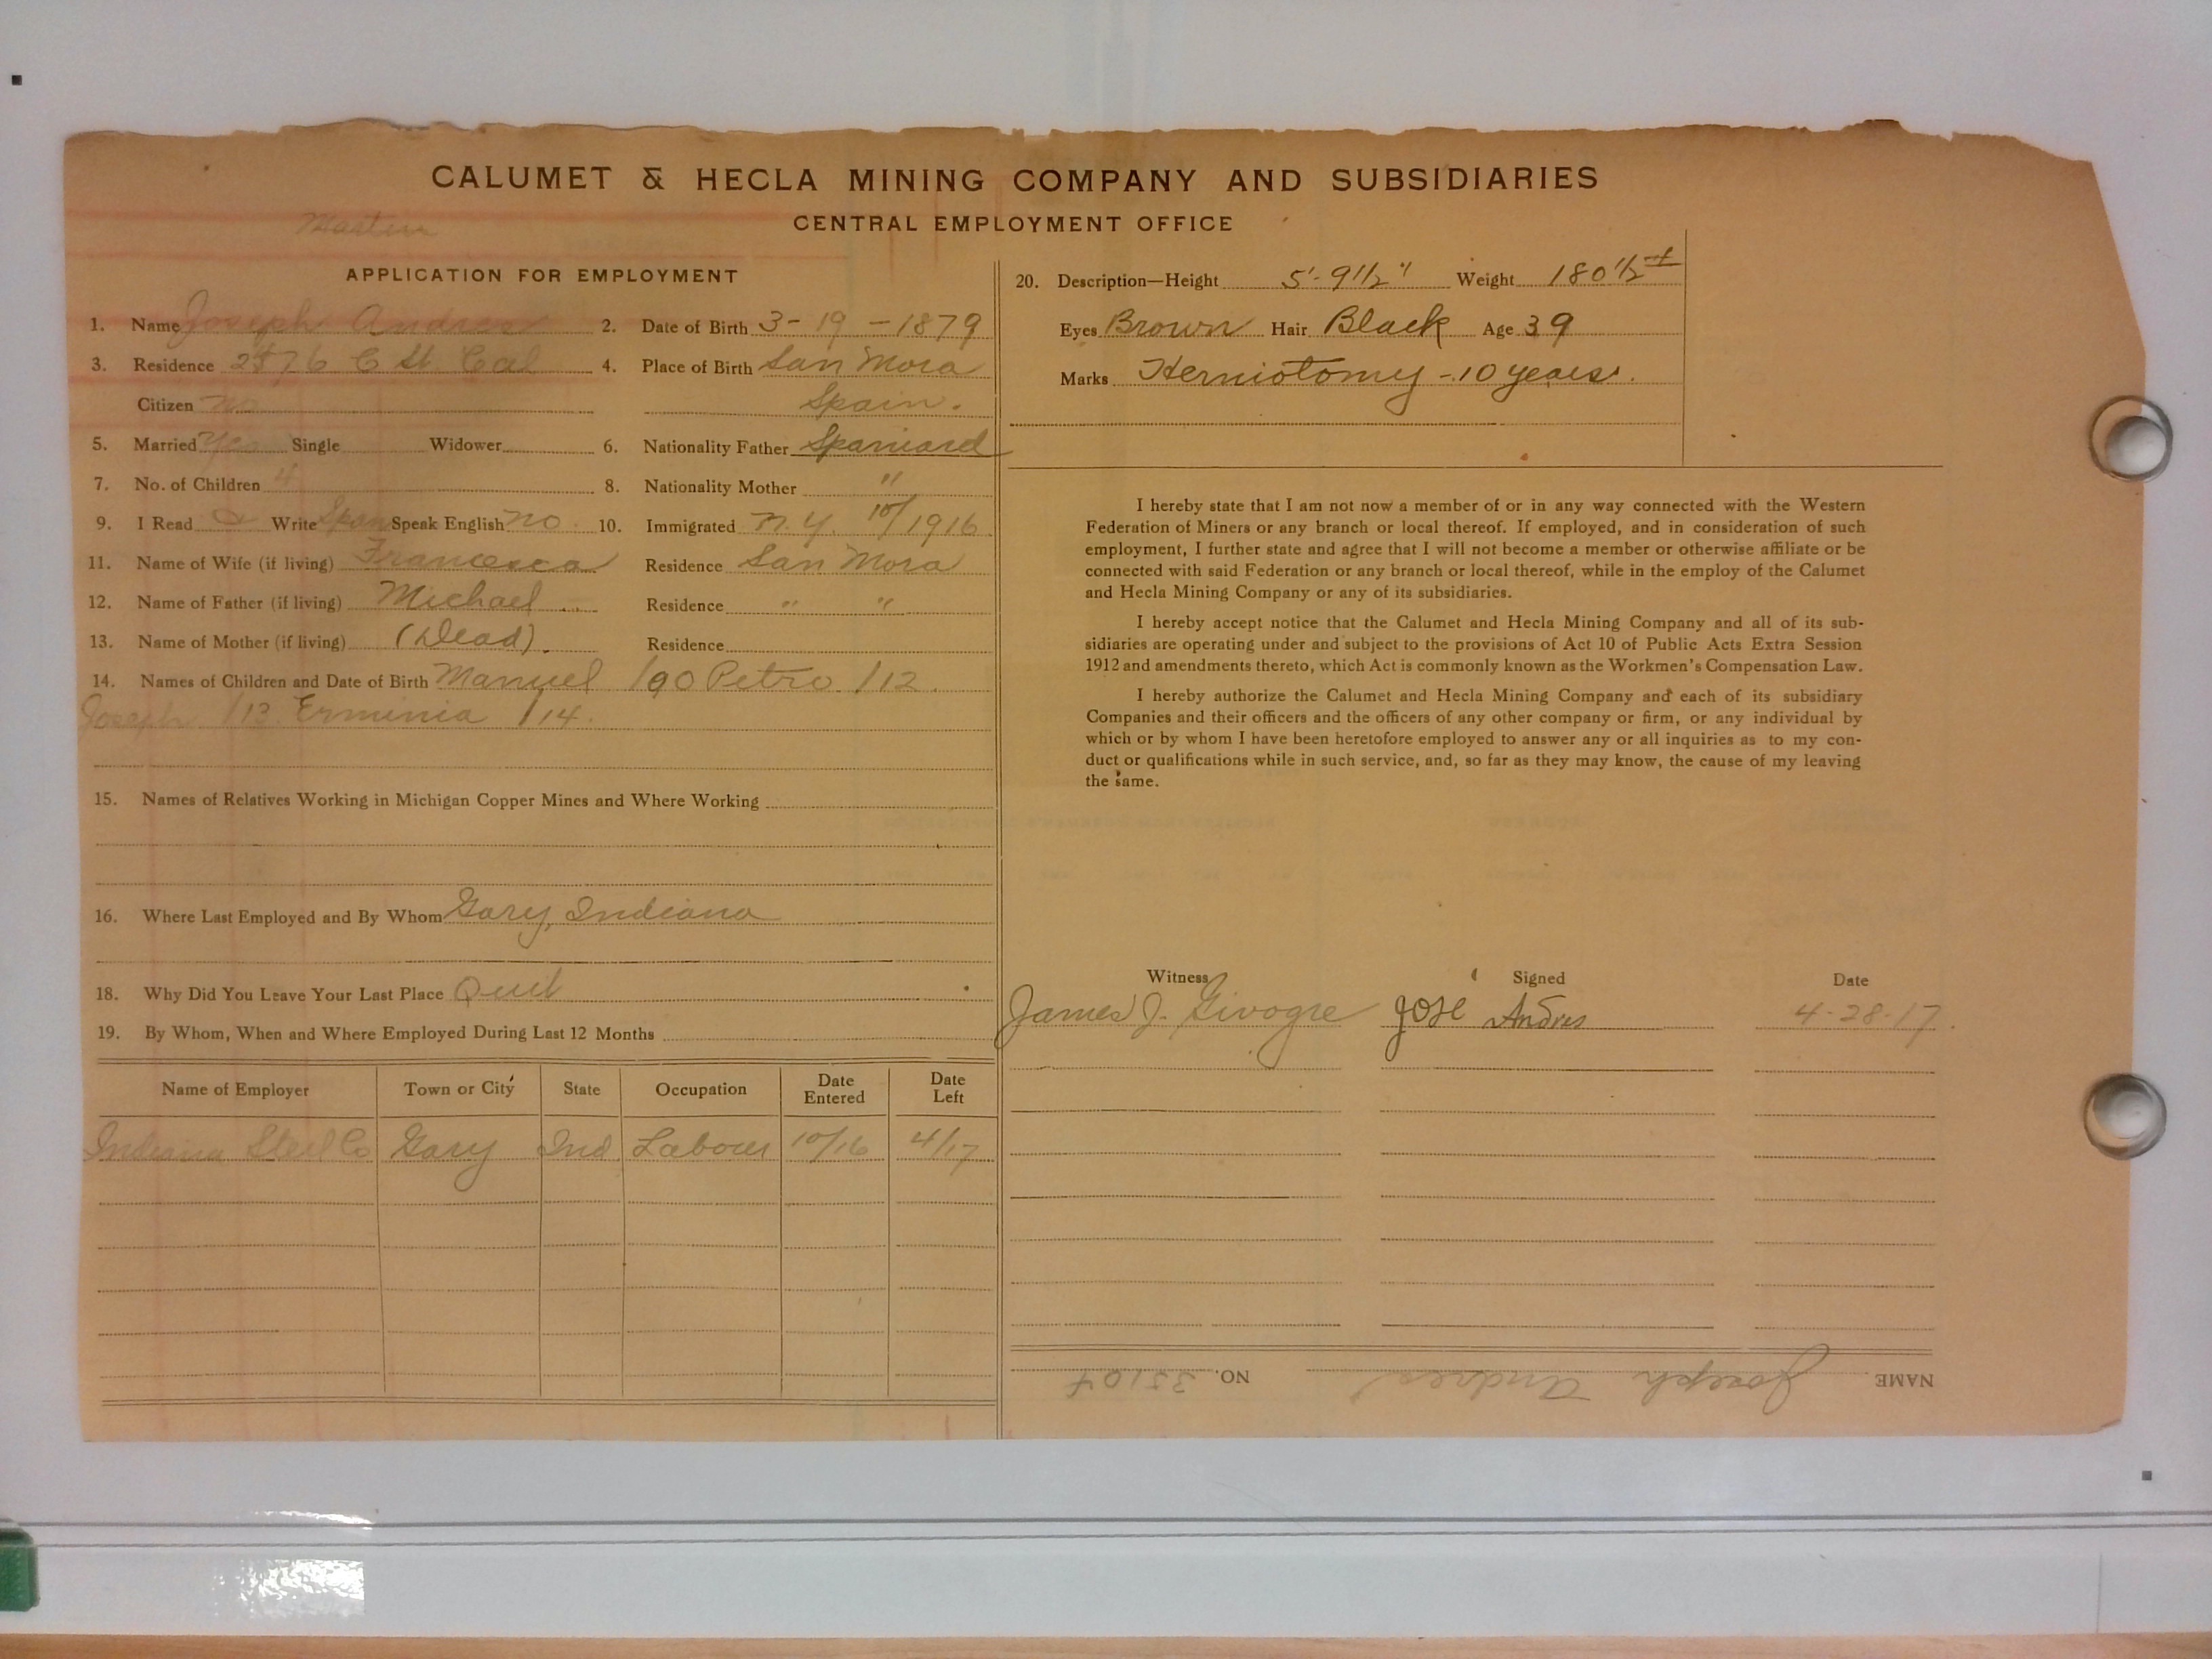 CALUMET & HECLA MINING COMPANY AND SUBSIDIARIES
CENTRAL EMPLOYMENT OFFICE
APPLICATION FOR EMPLOYMENT
1. Name Joseph Andres 2. Date of Birth 3-19-1879
3. Residence C St. Cal 4. Place of Birth San Mora
Citizen no Spain.
5. Married Yes Single Widower 6. Nationality Father Spaniard
7. No. of Children 4 8. Nationality Mother "
9. I Read & Write Span Speak English no 10. Immigrated N.Y. 10/1916
11. Name of Wife (if living) Francesca Residence San Mora
12. Name of Father (if living) Michael Residence " "
13. Name of Mother (if living) (Dead). Residence
14. Names of Children and Date of Birth Manuel /90 Petro /12.
Joseph /13 Erminia /14.
15. Names of Relatives Working in Michigan Copper Mines and Where Working
16. Where Last Employed and By Whom Gary, Indiana
18. Why Did You Leave Your Last Place Quit
19. By Whom, When and Where Employed During Last 12 Months
Name of Employer Town or City State Occupation Date Entered Date Left
Indiana Steel Co Gary Ind Laborer 10/16 4/17
20. Description—Height 5'-9 1/2" Weight 180 1/2 #
Eyes Brown Hair Black Age 39
Marks Herniotomy - 10 years.
I hereby state that I am not now a member of or in any way connected with the Western
Federation of Miners or any branch or local thereof. If employed, and in consideration of such
employment, I further state and agree that I will not become a member or otherwise affiliate or be
connected with said Federation or any branch or local thereof, while in the employ of the Calumet
and Hecla Mining Company or any of its subsidiaries.
I hereby accept notice that the Calumet and Hecla Mining Company and all of its sub-
sidiaries are operating under and subject to the provisions of Act 10 of Public Acts Extra Session
1912 and amendments thereto, which Act is commonly known as the Workmen's Compensation Law.
I hereby authorize the Calumet and Hecla Mining Company and each of its subsidiary
Companies and their officers and the officers of any other company or firm, or any individual by
which or by whom I have been heretofore employed to answer any or all inquiries as to my con-
duct or qualifications while in such service, and, so far as they may know, the cause of my leaving
the same.
Witness Signed Date
James J. Givogre José Andres 4-28-17.
NAME Joseph Andres NO.